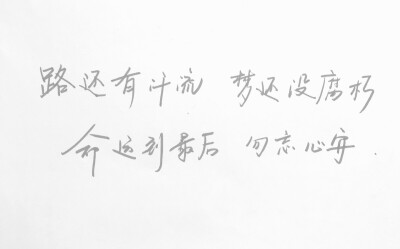 路还有汗流 梦还没腐朽
命运到最后 勿忘心安.